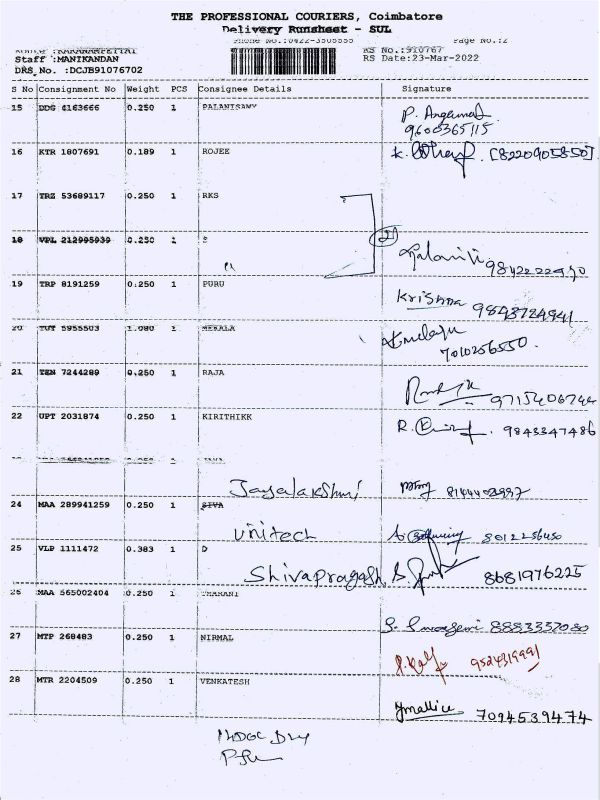 THE PROFESSIONAL COURIERS, Coimbatore
Delivery Runsheet - SUL
Page No.:2
Staff :MANIKANDAN
RS No.:910767
DRS No. :DCJB91076702
RS Date:23-Mar-2022
S No Consignment No Weight PCS Consignee Details Signature
15 DDG 4163666 0.250 1 PALANISAMY
9600365115
16 KTR 1807691 0.189 1 ROJEE [8220905850]
17 TRZ 53689117 0.250 1 RKS
18 VPL 212995939 0.250 1 S
9842222950
19 TRP 8191259 0.250 1 PURU
Krishna 9843724941
20 TUT 5955503 1.080 1 MEKALA
7010256550
21 TEN 7244289 0.250 1 RAJA
9715406744
22 UPT 2031874 0.250 1 KIRITHIKK
R. 9843347486
Jayalakshmi
24 MAA 289941259 0.250 1 SIVA
Unitech
25 VLP 1111472 0.383 1 D
Shivapragash 8681976225
26 MAA 565002404 0.250 1 THARANI
8883337080
27 MTP 268483 0.250 1 NIRMAL
9524319991
28 MTR 2204509 0.250 1 VENKATESH
7094539474